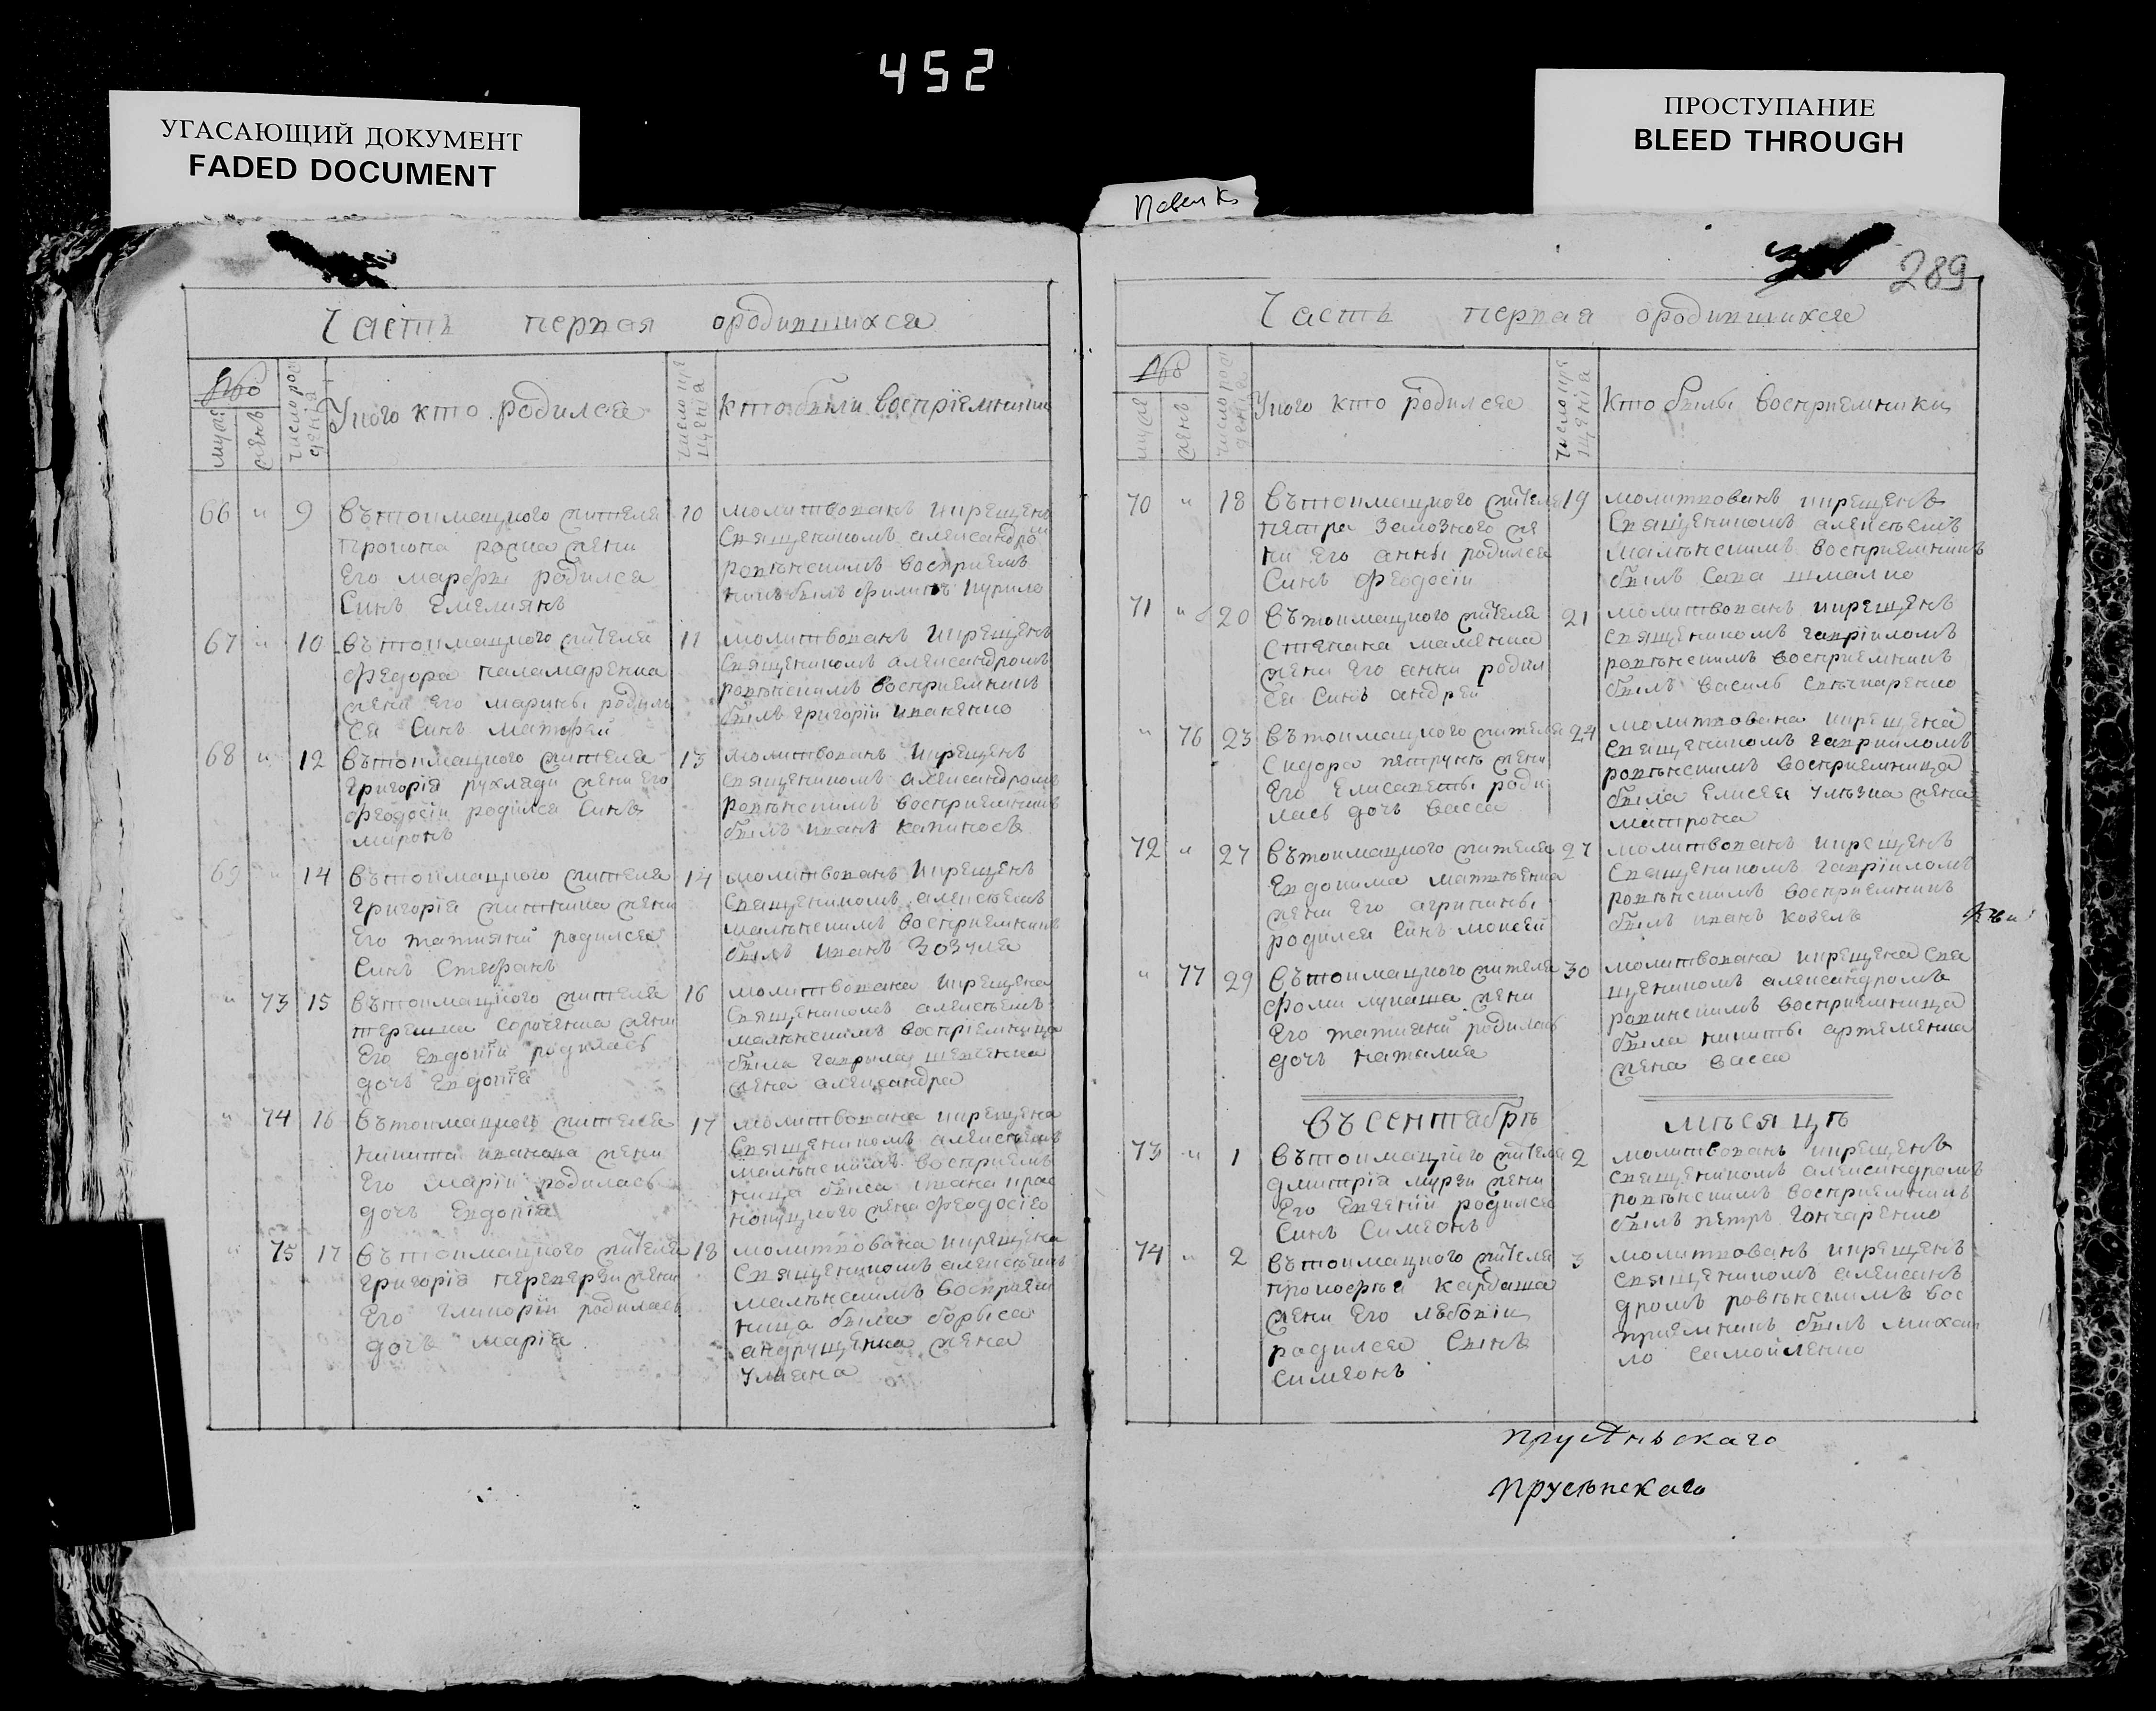 452
УГАСАЮЩИЙ ДОКУМЕНТ
FADED DOCUMENT
ПРОСТУПАНИЕ
BLEED THROUGH
289
Часть первая ородившихся
№
мужск
женъ
число рождения
Уного кто родился
число крещения
кто были воспріемники
66 " 9
Вътоимацкого жителя
Прокипа
жени
Его марфы родился
Синъ Емелиянъ
10
молитвованъ икрещенъ
Священикомъ александром
ровѣнскимъ восприем
никъ былъ филипъ курило
67 " 10
Вътоимацкого жителя
федора паламаренка
жени Его марины родил
ся Синъ матфей
11
молитвованъ икрещенъ
Священикомъ александромъ
ровѣнскимъ восприемникъ
былъ григорій иваненко
68 " 12
Вътоимацкого жителя
григорія рухляди жени Его
феодосіи родился Синъ
миронъ
13
молитвованъ икрещенъ
священикомъ александромъ
ровѣнскимъ восприемникъ
былъ иванъ капиносъ
69 " 14
Вътоимацкого жителя
григорія житника жени
Его татияни родился
Синъ Стефанъ
14
молитвованъ икрещенъ
Священикомъ алексѣемъ
малѣнскимъ восприемникъ
былъ иванъ Зозуля
" 73 15
вътоимацкого жителя
терешка Сороченка жени
Его Евдокіи родилась
дочъ Евдокія
16
молитвована икрещена
Священикомъ алексѣемъ
малѣнскимъ воспріемница
была гаврыла шевченка
жена александра
" 74 16
Вътоимацкого жителя
никита иванова жени
Его маріи родилась
дочъ Евдокія
17
молитвована икрещена
Священикомъ алексѣемъ
малѣнскимъ восприем
ница была ивана крас
жена феодосія
" 75 17
Вътоимацкого жителя
григорія перевержи жени
Его гликоріи родилась
дочъ марія
18
молитвована икрещена
Священикомъ алексѣемъ
малѣнскимъ восприем
ница была борыса
андрущенка жена
Уляна
Часть первая ородившихся
№
мужск
женъ
число рождения
Уного кто родился
число крещения
Кто былы восприемники
70 " 18
Вътоимацкого жителя
петра Заможного же
ни Его анны родился
Синъ феодосіи
19
молитвованъ икрещенъ
Священикомъ алексѣемъ
малѣнскимъ восприемникъ
былъ Сава шмалко
71 " 20
Вътоимацкого жителя
степана маменка
жени Его анни родил
ся Синъ андрей
21
молитвованъ икрещенъ
священикомъ гавріиломъ
ровѣнскимъ восприемникъ
былъ василь Снѣгкаренко
" 76 23
Вътоимацкого жителя
Сидора петрунѣ жени
Его Елисаветы роди
лась дочъ васса
24
молитвована икрещена
Священикомъ гавриломъ
ровѣнскимъ восприемница
была Елисея жена
матрона
72 " 27
Вътоимацкого жителя
Евдокима матвѣенка
жени Его агрипины
родился Синъ моисей
27
молитвованъ икрещенъ
Священикомъ гавріиломъ
ровѣнскимъ восприемникъ
былъ иванъ козелъ
" 77 29
Вътоимацкого жителя
фоми лукаша жени
Его татияни родилась
дочъ наталия
30
молитвована икрещена свя
щеникомъ александромъ
ровинскимъ восприемница
была никиты артеменка
жена васса
въ сентябрѣ мѣсяцѣ
73 " 1
Вътоимацкого жителя
дмитрія мурзи жени
Его Евгеніи родился
Синъ Симеонъ
2
молитвованъ икрещенъ
священикомъ александромъ
ровѣнскимъ восприемникъ
былъ петръ гончаренко
74 " 2
Вътоимацкого жителя
прокофѣя карбаша
жени Его любовіи
родился Сынъ
симеонъ
3
молитвованъ икрещенъ
священикомъ алексан
дромъ ровѣнскимъ вос
приемникъ былъ михаи
ло Самойленко